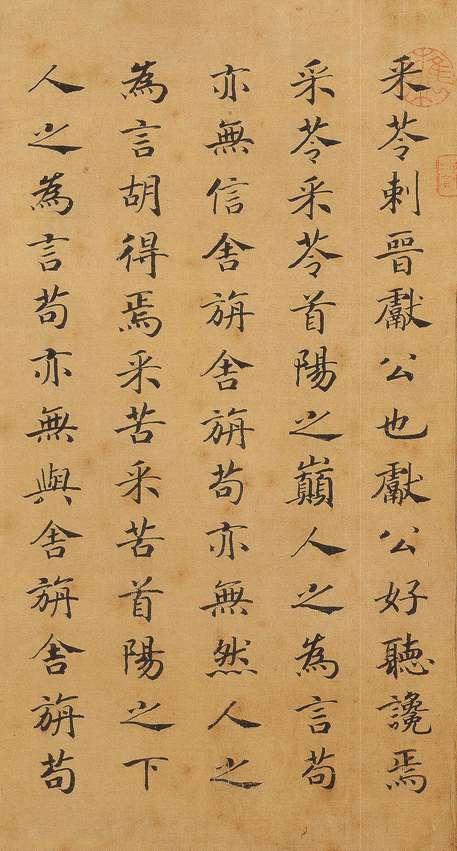 采苓刺晉獻公也獻公好聽讒焉
采苓采苓首陽之巔人之為言苟
亦無信舍旃舍旃苟亦無然人之
為言胡得焉采苦采苦首陽之下
人之為言苟亦無與舍旃舍旃苟